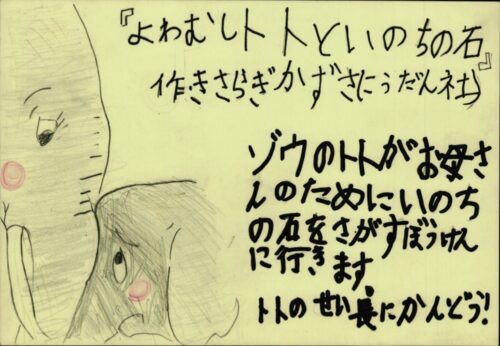 『よわむしトトといのちの石』
作・きさらぎかずさ にうだん社
ゾウのトトがお母さ
んのためにいのち
の石をさがすぼうけん
に行きます。
トトのせい長にかんどう!